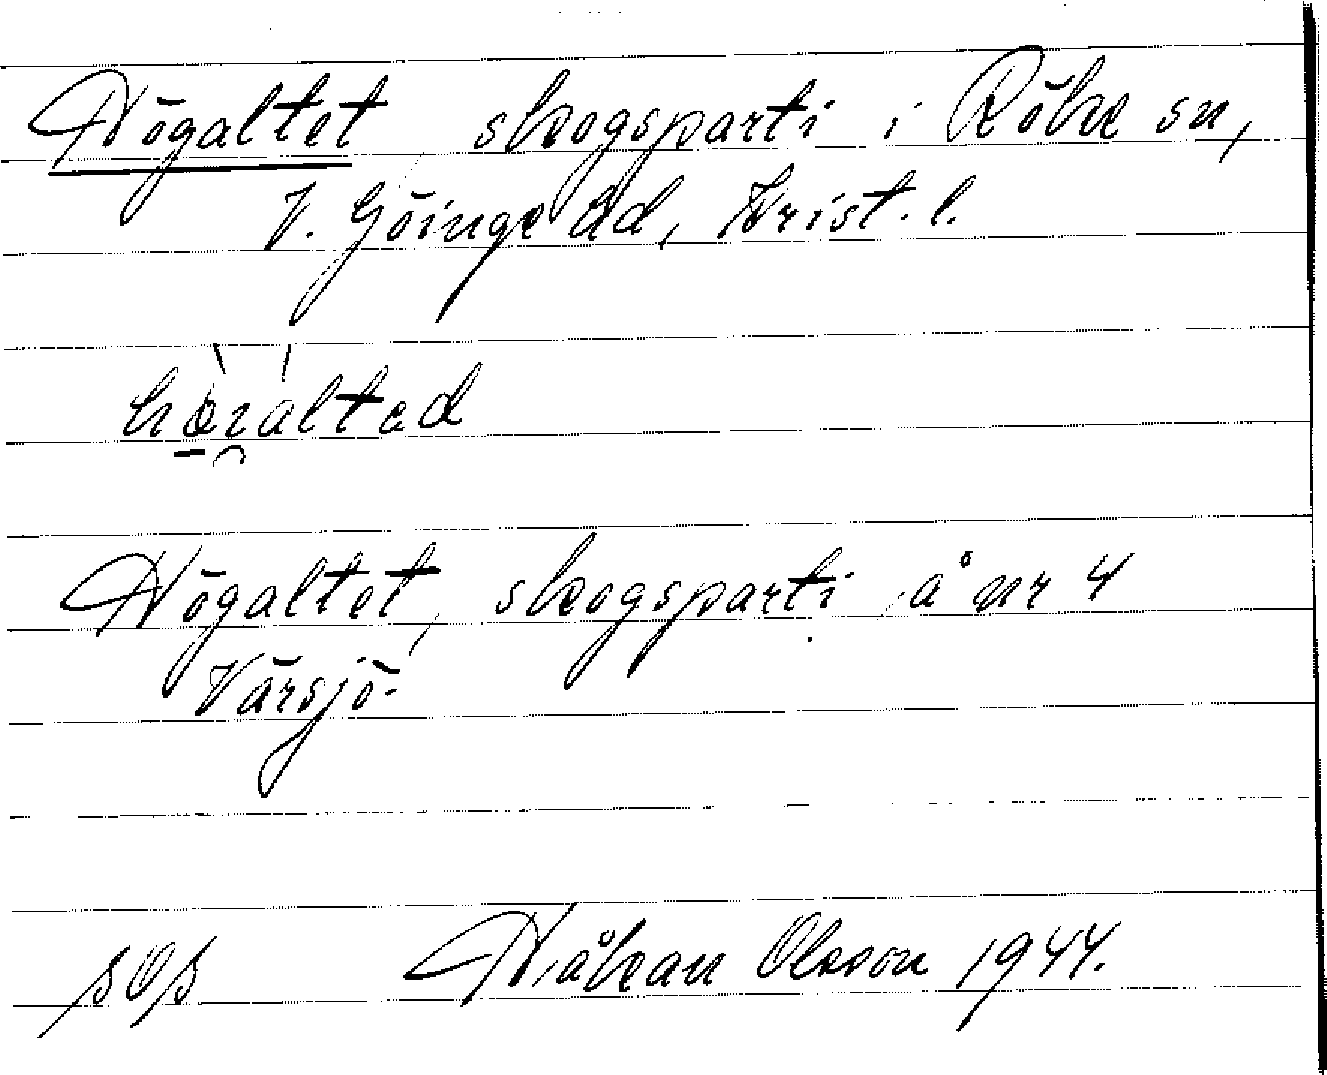 Högaltet, skogsparti i Röke sn,
V. Göinge hd, Krist. l.
hòi̯áltad
Högaltet, skogsparti å nr 4
Värsjö.
Håkan Olsson 1944.